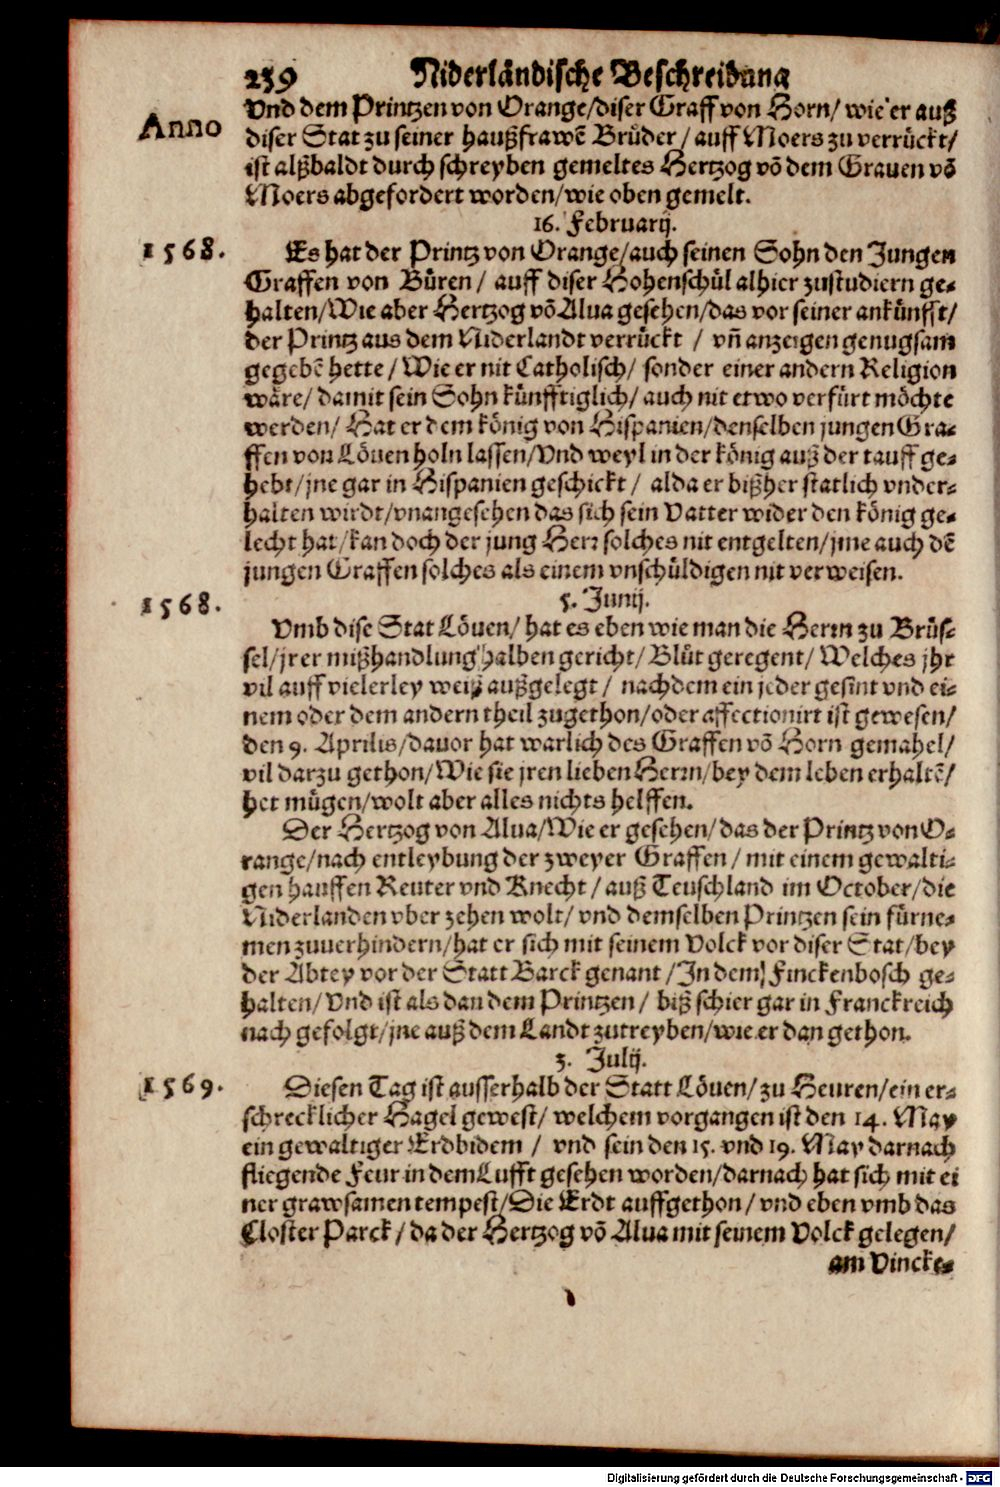 239 Niderländische Beschreibung
Vnd dem Printzen von Orange/diser Graff von Horn/ wie er auß
Anno
diser Stat zu seiner haußfrawē Brüder/ auff Moers zu verrückt/
ist alßbaldt durch schreyben gemeltes Hertzog vō dem Grauen vō
Moers abgefordert worden/wie oben gemelt.
16. Februarij.
1568.
Es hat der Printz von Orange/auch seinen Sohn den Jungen
Graffen von Büren/ auff diser Hohenschül alhier zustudiern ge-
halten/Wie aber Hertzog vō Alua gesehen/das vor seiner ankünfft/
der Printz aus dem Niderlandt verrückt/ vñ anzeigen genugsam
gegebē hette/Wie er nit Catholisch/ sonder einer andern Religion
wäre/ damit sein Sohn künfftiglich/ auch nit etwo verfürt möchte
werden/ Hat er dem könig von Hispanien/denselben jungen Gra-
ffen von Löuen holn lassen/Vnd weyl in der könig auß der tauff ge-
hebt/jne gar in Hispanien geschickt/ alda er bißher statlich vnder-
halten wirdt/vnangesehen das sich sein Vatter wider den könig ge-
lecht hat/kan doch der jung Herr solches nit entgelten/jme auch dē
jungen Graffen solches als einem vnschüldigen nit verweisen.
5. Junij.
1568.
Vmb dise Stat Löuen/ hat es eben wie man die Herrn zu Brüs-
sel/jrer mißhandlung halben gericht/ Blüt geregent/ Welches jhr
vil auff vielerley weiß außgelegt/ nachdem ein jeder gesint vnd ei-
nem oder dem andern theil zugethon/oder affectionirt ist gewesen/
den 9. Aprilis/dauor hat warlich des Graffen vō Horn gemahel/
vil darzu gethon/Wie sie jren lieben Herrn/bey dem leben erhaltē/
het mügen/wolt aber alles nichts helffen.
Der Hertzog von Alua/Wie er gesehen/das der Printz von O-
range/nach entleybung der zweyer Graffen/ mit einem gewalti-
gen hauffen Reuter vnd Knecht/ auß Teuschland im October/die
Niderlanden vber zehen wolt/ vnd demselben Printzen sein fürne-
men zuuerhindern/hat er sich mit seinem Volck vor diser Stat/bey
der Abtey vor der Statt Barck genant/In dem Finckenbosch ge-
halten/Vnd ist als dan dem Printzen/ biß schier gar in Franckreich
nach gefolgt/jne auß dem Landt zutreyben/wie er dan gethon.
3. Julij.
1569.
Diesen Tag ist ausserhalb der Statt Löuen/zu Heuren/ein er-
schrecklicher Hagel gewest/ welchem vorgangen ist den 14. May
ein gewaltiger Erdbidem/ vnd sein den 15. vnd 19. May darnach
fliegende Feur in dem Lufft gesehen worden/darnach hat sich mit ei
ner grawsamen tempest/Die Erdt auffgethon/ vnd eben vmb das
Closter Parck/da der Hertzog vō Alua mit seinem Volck gelegen/
am Vincke-
Digitalisierung gefördert durch die Deutsche Forschungsgemeinschaft - DFG